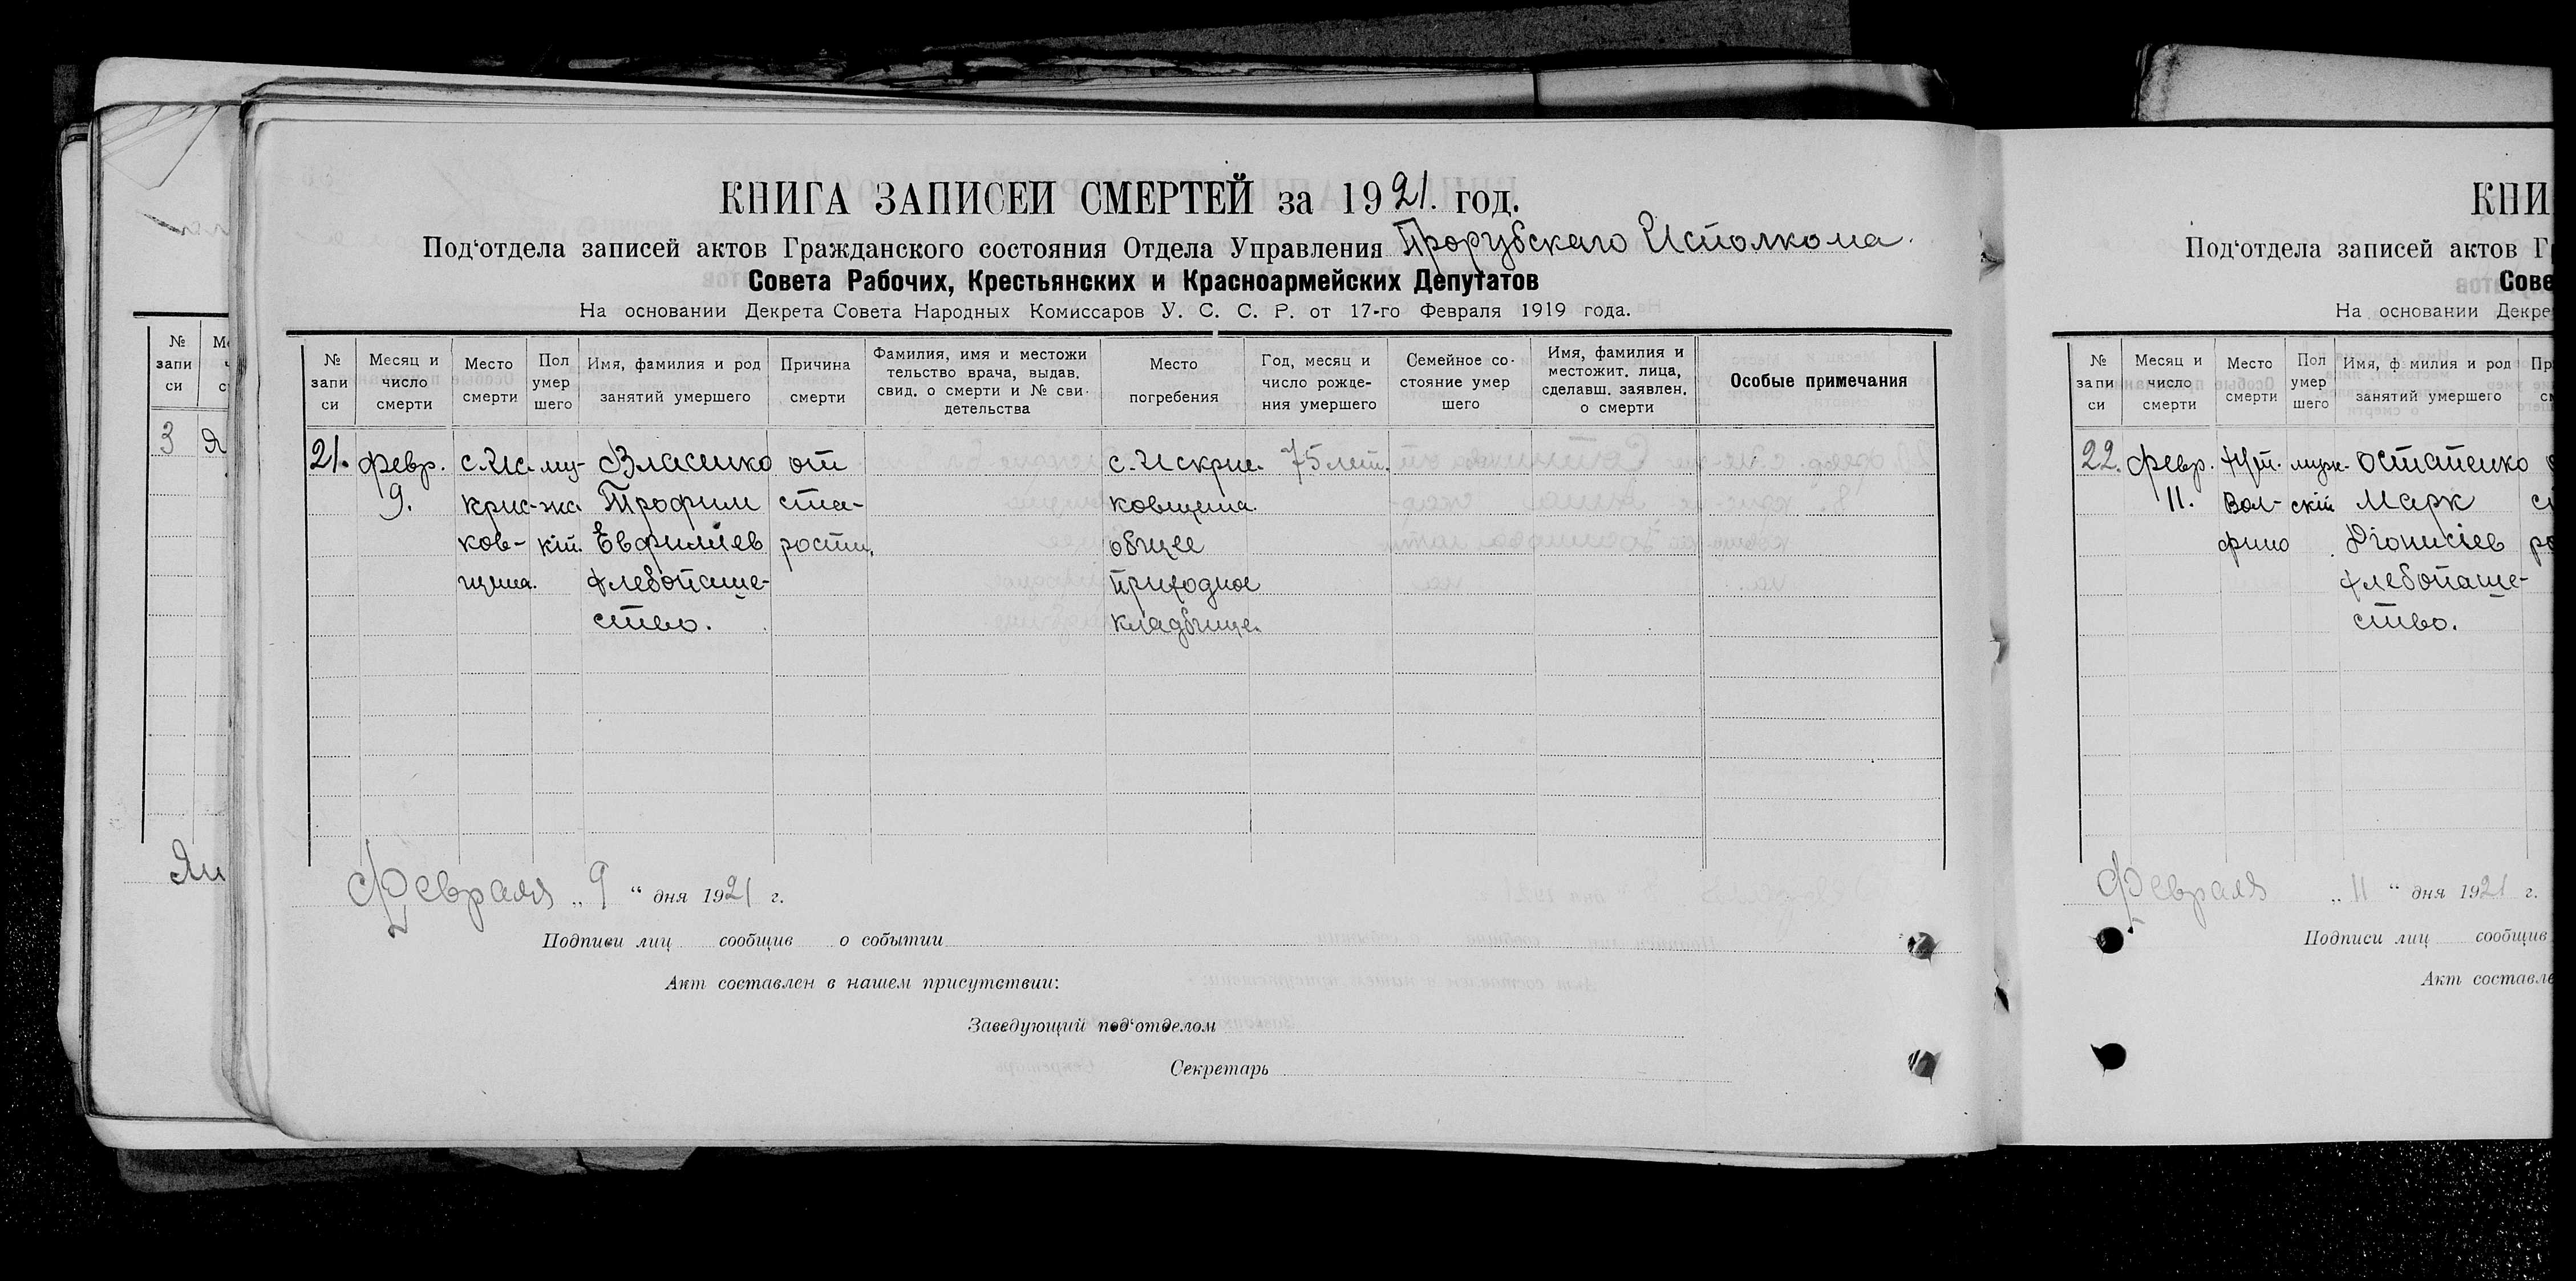 КНИГА ЗАПИСЕЙ СМЕРТЕЙ за 1921. год.
Под‘отдела записей актов Гражданского состояния Отдела Управления Прорубскаго Исполкома.
Совета Рабочих, Крестьянских и Красноармейских Депутатов
На основании Декрета Совета Народных Комиссаров У. С. С. Р. от 17-го Февраля 1919 года.
№ запи си
Месяц и число смерти
Место смерти
Пол умер шего
Имя, фамилия и род занятий умершего
Причина смерти
Фамилия, имя и местожи тельство врача, выдав. свид. о смерти и № сви- детельства
Место погребения
Год, месяц и число рожде- ния умершего
Семейное со- стояние умер шего
Имя, фамилия и местожит. лица, сделавш. заявлен. о смерти
Особые примечания
21. февр. с. Ис- му- Власенко от с. Искрис- 75 лет.
9. крис- жс- Трофим ста- ковщина
ков- кій. Евфиміев рости. общее
щина. хлебопаше- приходное
ство. кладбище.
Февраля „ 9 “ дня 1921 г.
Подписи лиц сообщив о событии
Акт составлен в нашем присутствии:
Заведующий под‘отделом
Секретарь
№ запи си
3 Я
Ян
КНИ
Под‘отдела записей актов Г
Сове
На основании Декре
№ запи си
Месяц и число смерти
Место смерти
Пол умер шего
Имя, ф милия и род занятий умершего
22. февр. хут. муж- Остапенко
11. Вол- скій Марк
фино Діонисіев
хлебопаше-
ство.
Февраля „ 11 “ дня 1921 г.
Подписи лиц сообщив
Акт составле